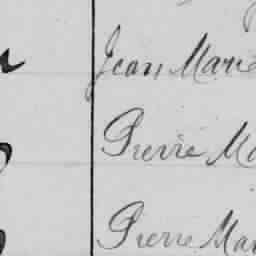 Jean Marie
Pierre Ma
Pierre Mar